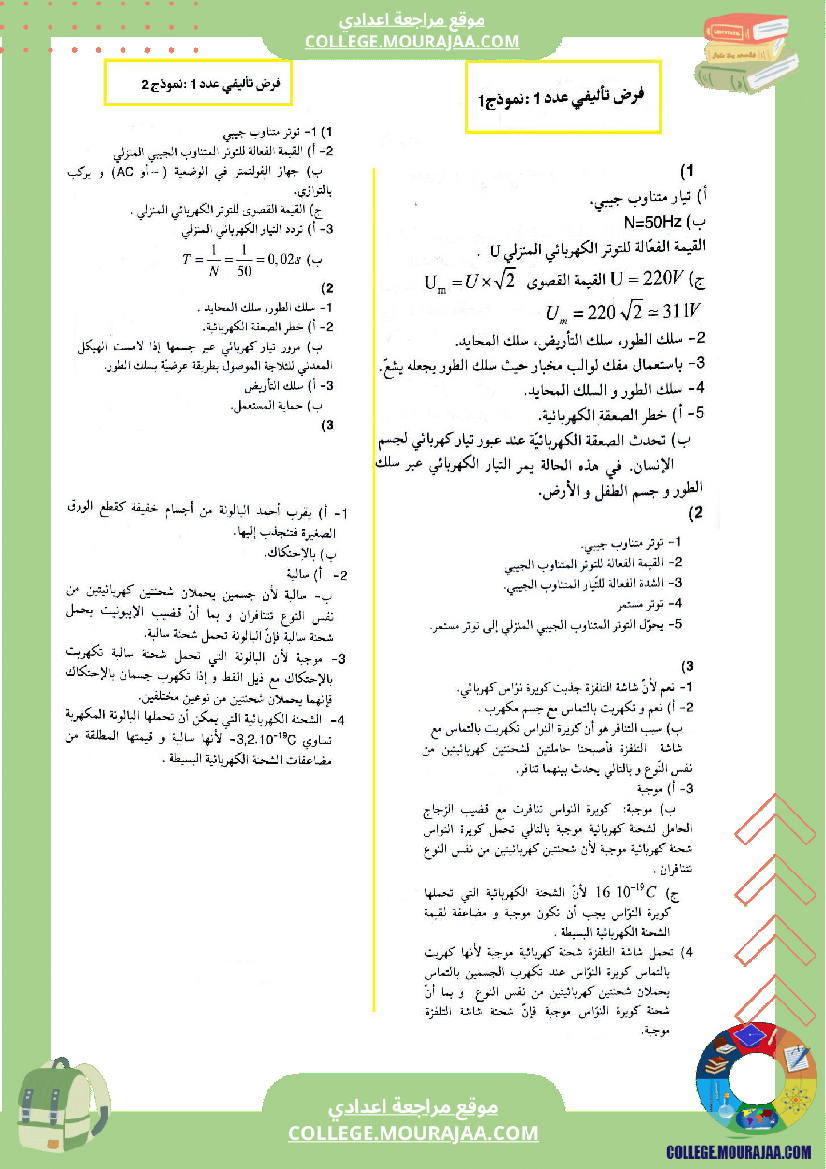 موقع مراجعة اعدادي
COLLEGE.MOURAJAA.COM
فرض تأليفي عدد 1 :نموذج1
1)
أ) تيار متناوب جيبي.
ب) N=50Hz
القيمة الفعّالة للتوتر الكهربائي المنزلي U .
ج) U = 220V القيمة القصوى Um = U × √2
Um = 220 √2 ≃ 311V
2- سلك الطور، سلك التأريض، سلك المحايد.
3- باستعمال مفك لوالب مخبار حيث سلك الطور يجعله يشعّ.
4- سلك الطور و السلك المحايد.
5- أ) خطر الصعقة الكهربائية.
ب) تحدث الصعقة الكهربائيّة عند عبور تيار كهربائي لجسم
الإنسان. في هذه الحالة يمر التيار الكهربائي عبر سلك
الطور و جسم الطفل و الأرض.
2)
1- توتر متناوب جيبي.
2- القيمة الفعالة للتوتر المتناوب الجيبي
3- الشدة الفعالة للتّيار المتناوب الجيبي.
4- توتر مستمر
5- يحوّل التوتر المتناوب الجيبي المنزلي إلى توتر مستمر.
3)
1- نعم لأنّ شاشة التلفزة جذبت كويرة نوّاس كهربائي.
2- أ) نعم و تكهربت بالتماس مع جسم مكهرب .
ب) سبب التنافر هو أن كويرة النواس تكهربت بالتماس مع
شاشة التلفزة فأصبحنا حاملتين لشحنتين كهربائيتين من
نفس النّوع و بالتالي يحدث بينهما تنافر.
3- أ) موجبة
ب) موجبة: كويرة النواس تنافرت مع قضيب الزجاج
الحامل لشحنة كهربائية موجبة بالتالي تحمل كويرة النواس
شحنة كهربائية موجبة لأن شحنتين كهربائيتين من نفس النوع
تتنافران .
ج) 16 10⁻¹⁹C لأنّ الشحنة الكهربائية التي تحملها
كويرة النوّاس يجب أن تكون موجبة و مضاعفة لقيمة
الشحنة الكهربائية البسيطة .
4) تحمل شاشة التلفزة شحنة كهربائية موجبة لأنها كهربت
بالتماس كويرة النوّاس عند تكهرب الجسمين بالتماس
يحملان شحنتين كهربائيتين من نفس النوع و بما أنّ
شحنة كويرة النوّاس موجبة فإنّ شحنة شاشة التلفزة
موجبة.
فرض تأليفي عدد 1 :نموذج 2
1) 1- توتر متناوب جيبي
2- أ) القيمة الفعالة للتوتر المتناوب الجيبي المنزلي
ب) جهاز الفولتمتر في الوضعية (~ أو AC) و يركب
بالتوازي.
ج) القيمة القصوى للتوتر الكهربائي المنزلي .
3- أ) تردد التيار الكهربائي المنزلي
ب) T = 1/N = 1/50 = 0,02s
2)
1- سلك الطور، سلك المحايد .
2- أ) خطر الصعقة الكهربائية.
ب) مرور تيار كهربائي عبر جسمها إذا لامست الهيكل
المعدني للثلاجة الموصول بطريقة عرضيّة بسلك الطور.
3- أ) سلك التأريض
ب) حماية المستعمل.
3)
1- أ) يقرب أحمد البالونة من أجسام خفيفة كقطع الورق
الصغيرة فتنجذب إليها.
ب) بالإحتكاك.
2- أ) سالبة
ب- سالبة لأن جسمين يحملان شحنتين كهربائيتين من
نفس النوع تتنافران و بما أنّ قضيب الإيبونيت يحمل
شحنة سالبة فإنّ البالونة تحمل شحنة سالبة.
3- موجبة لأن البالونة التي تحمل شحنة سالبة تكهربت
بالإحتكاك مع ذيل القط و إذا تكهرب جسمان بالإحتكاك
فإنهما يحملان شحنتين من نوعين مختلفين.
4- الشحنة الكهربائية التي يمكن أن تحملها البالونة المكهربة
تساوي -3,2.10⁻¹⁹C لأنها سالبة و قيمتها المطلقة من
مضاعفات الشحنة الكهربائية البسيطة .
موقع مراجعة اعدادي
COLLEGE.MOURAJAA.COM
COLLEGE.MOURAJAA.COM